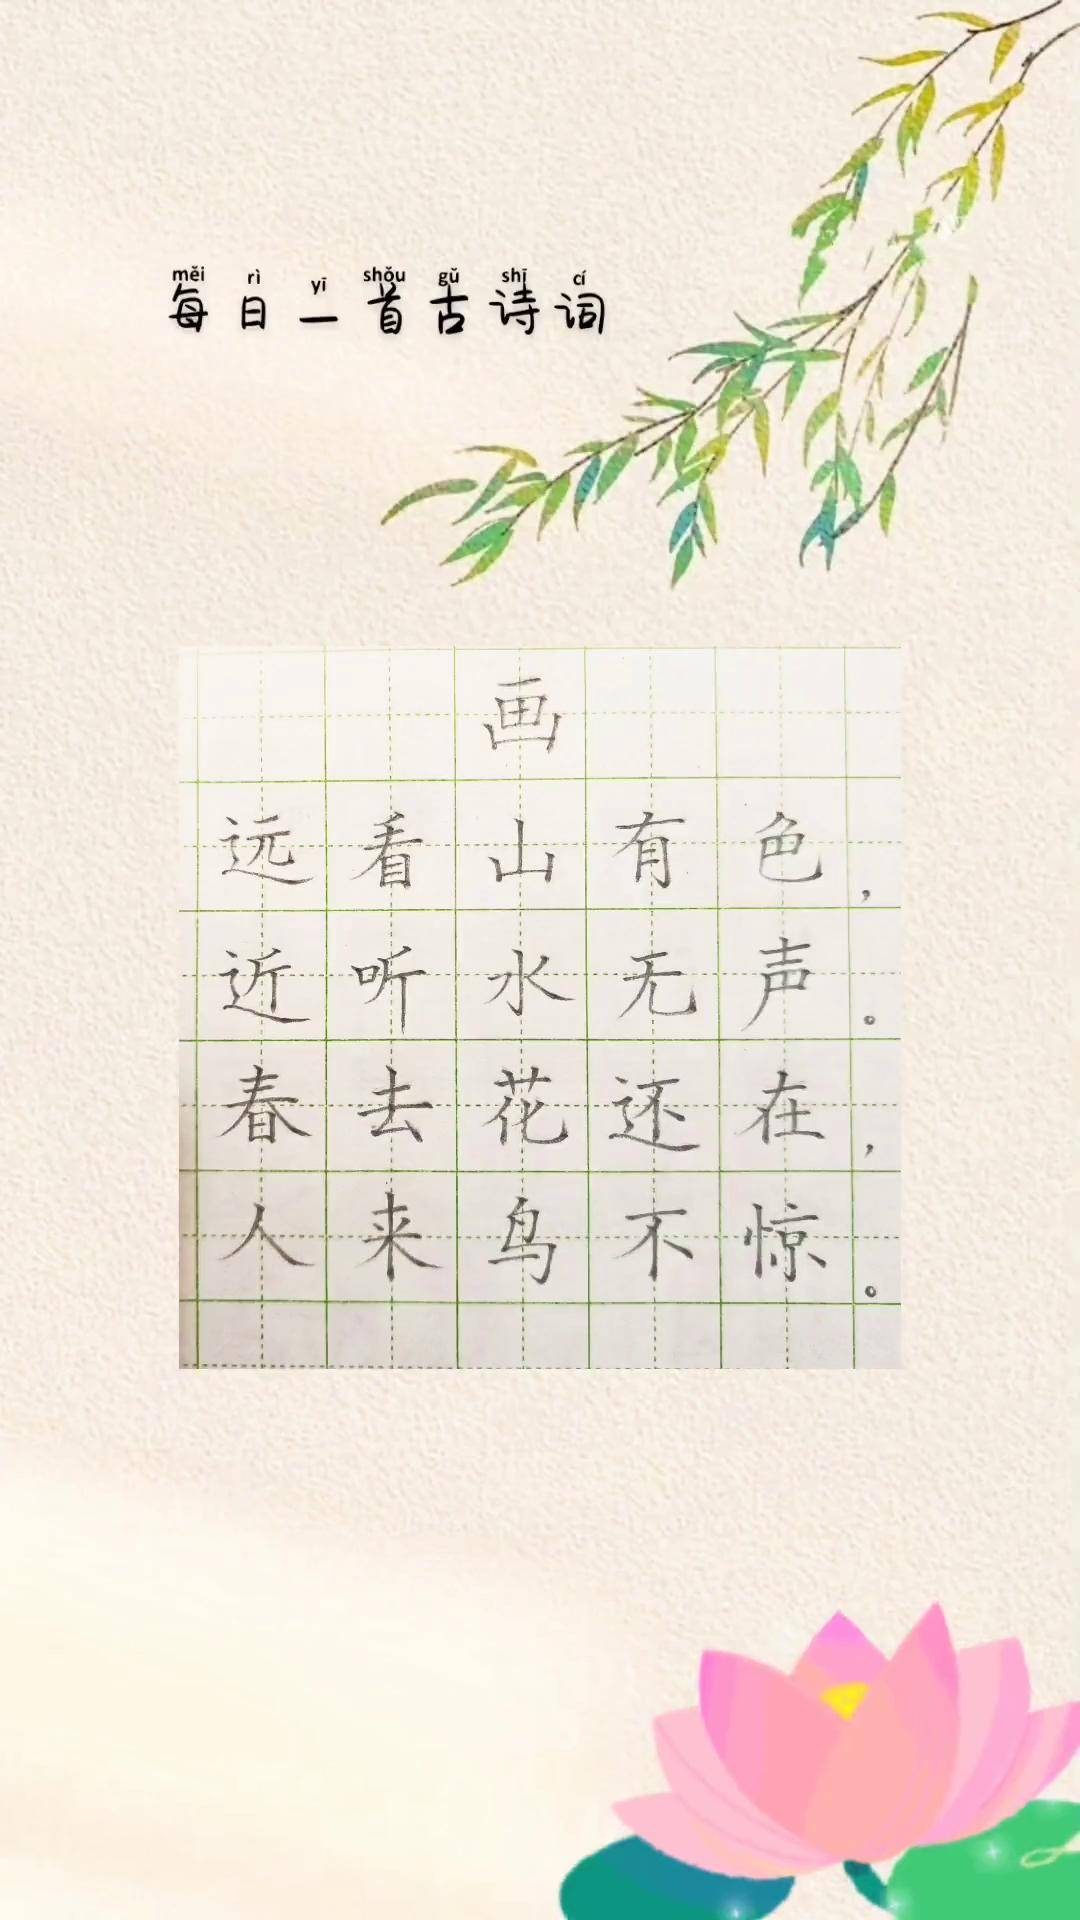 měi rì yī shǒu gǔ shī cí
每日一首古诗词
画
远看山有色，
近听水无声。
春去花还在，
人来鸟不惊。